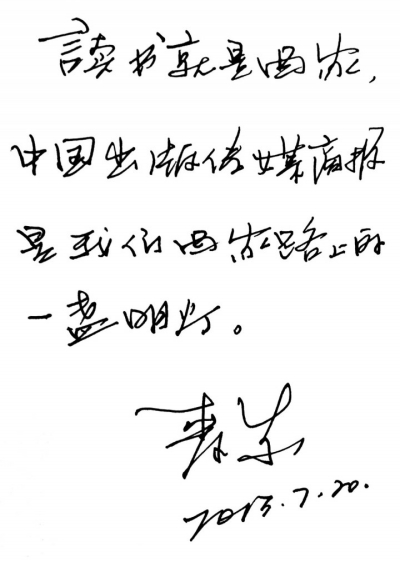 读书就是回家，
中国出版传媒商报
是我们回家路上的
一盏明灯。
麦家
2013.7.20.